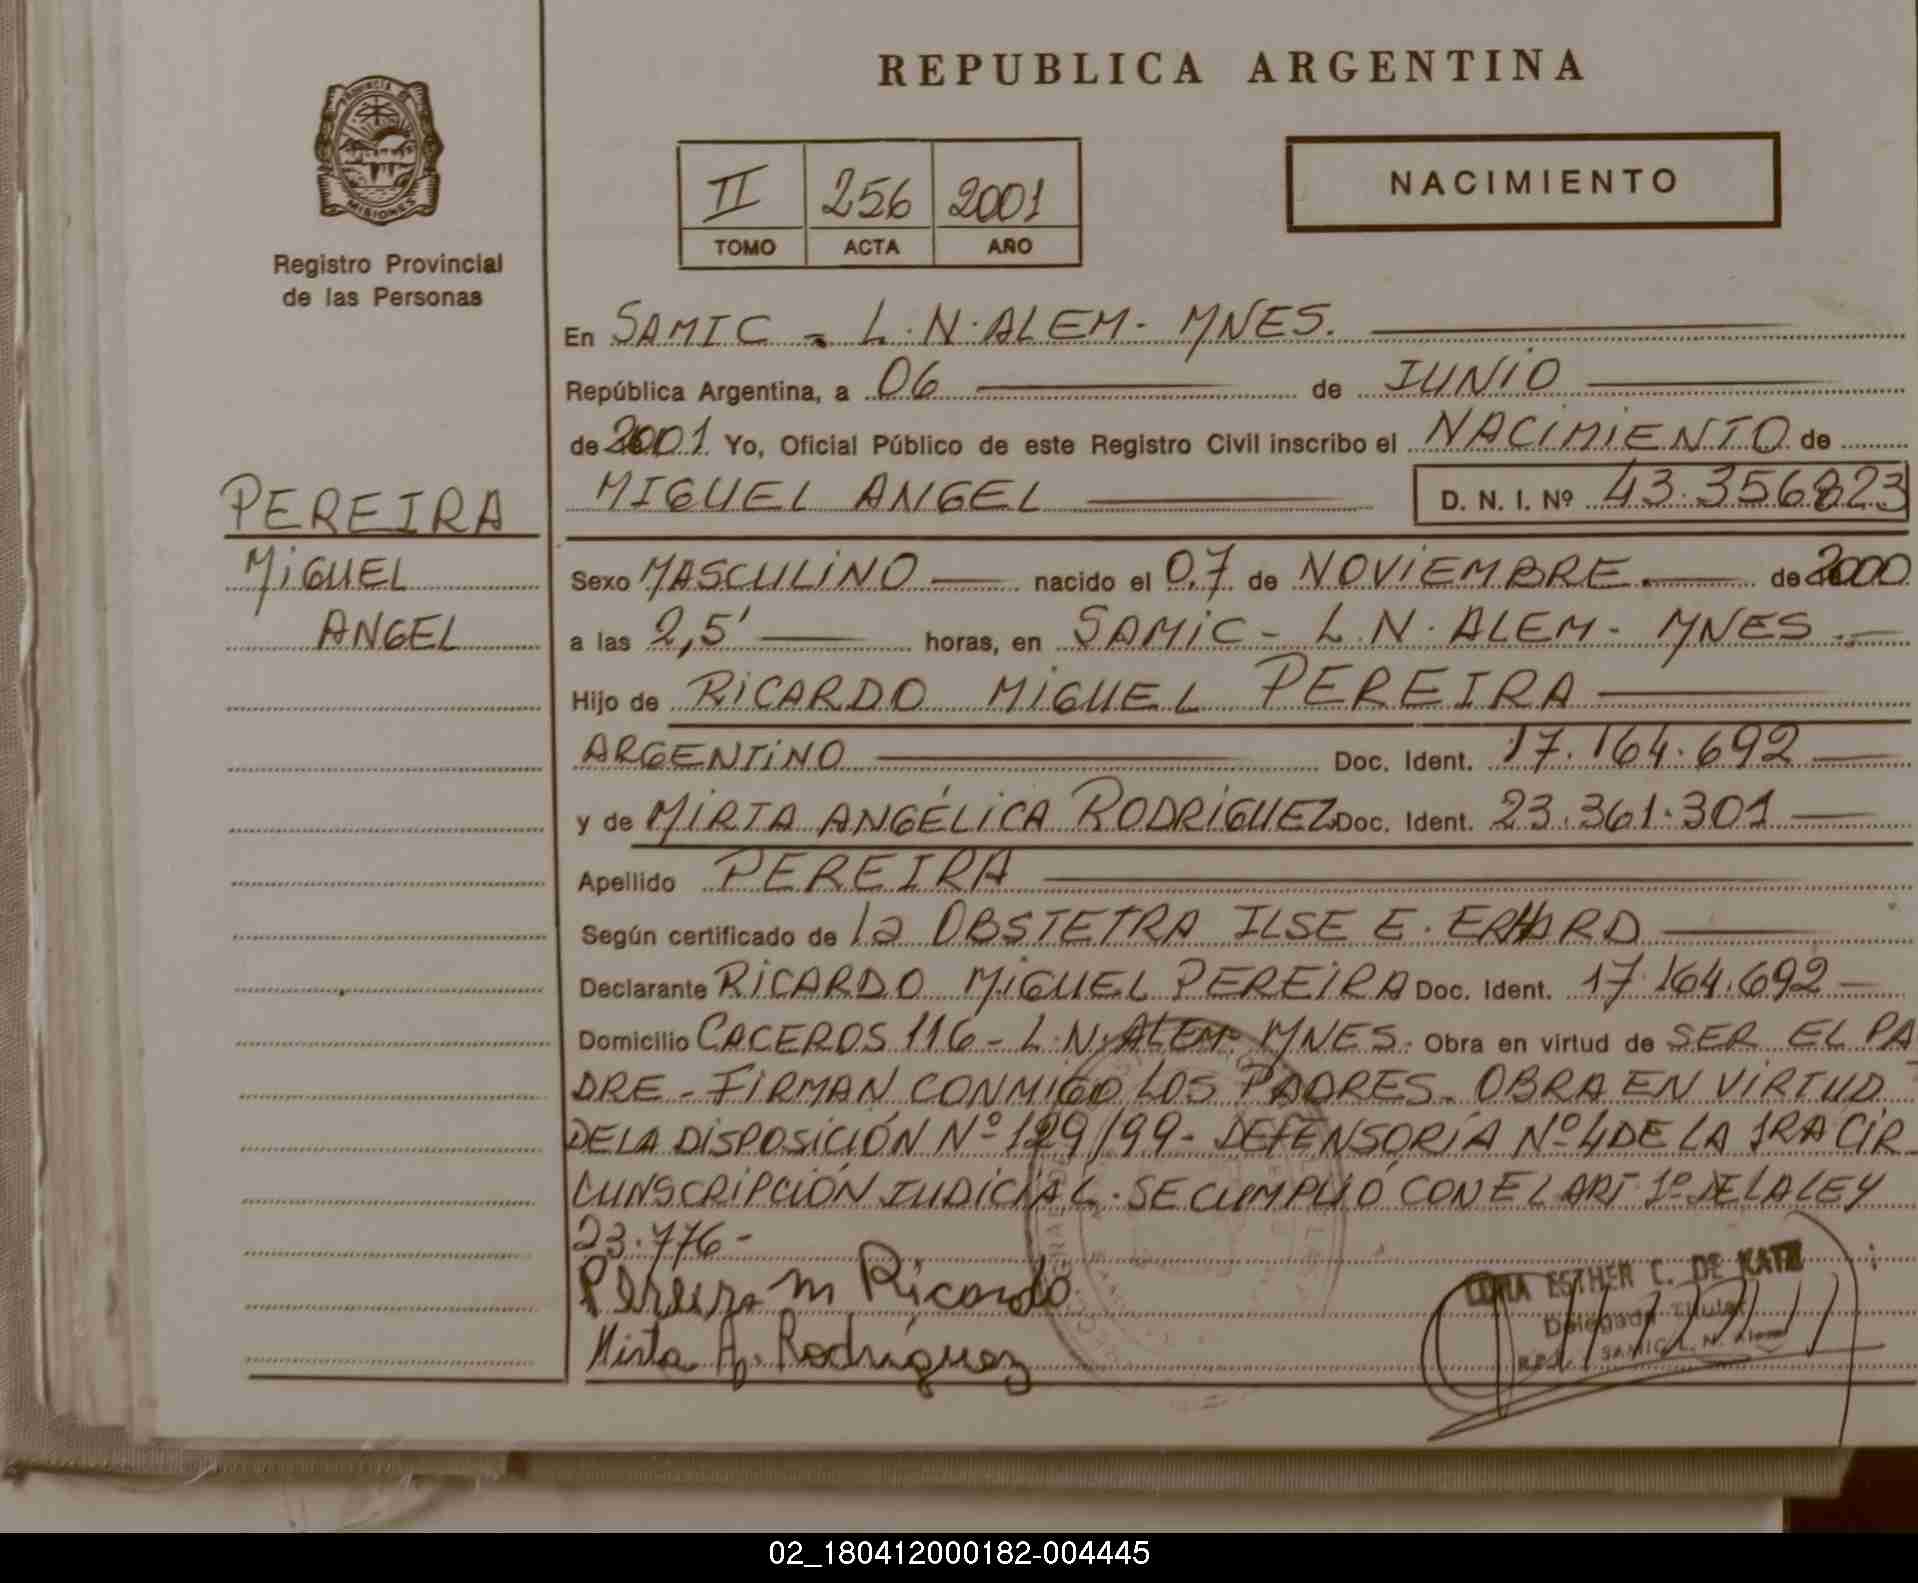 REPUBLICA ARGENTINA
PROVINCIA DE
MISIONES
Registro Provincial
de las Personas
II 256 2001
TOMO ACTA AÑO
NACIMIENTO
En SAMIC - L.N. ALEM - MNES.
República Argentina, a 06 de JUNIO
de 2001 Yo, Oficial Público de este Registro Civil inscribo el NACIMIENTO de
MIGUEL ANGEL D. N. I. Nº 43.356823
PEREIRA
MIGUEL
ANGEL
Sexo MASCULINO nacido el 07 de NOVIEMBRE. de 2000
a las 2,5' horas, en SAMIC - L.N. ALEM - MNES.
Hijo de RICARDO MIGUEL PEREIRA
ARGENTINO Doc. Ident. 17.164.692
y de MIRTA ANGÉLICA RODRIGUEZ Doc. Ident. 23.361.301
Apellido PEREIRA
Según certificado de la OBSTETRA ILSE E.
Declarante RICARDO MIGUEL PEREIRA Doc. Ident. 17.164.692
Domicilio CACEROS 116 - L.N. ALEM - MNES. Obra en virtud de SER EL PA
DRE - FIRMAN CONMIGO LOS PADRES. OBRA EN VIRTUD
DE LA DISPOSICIÓN Nº 129/99 - DEFENSORÍA Nº 4 DE LA 1RA CIR
CUNSCRIPCIÓN JUDICIAL. SE CUMPLIÓ CON EL ART 1º DE LA LEY
23.776 -
Pereira M Ricardo
Mirta A. Rodríguez
ESTHER C. DE KATZ
Delegada Titular
SAMIC L. N. Alem
02_180412000182-004445